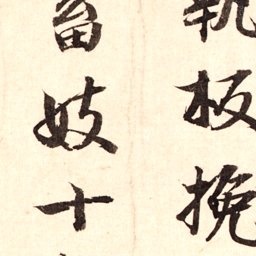 執板挽
畜妓十